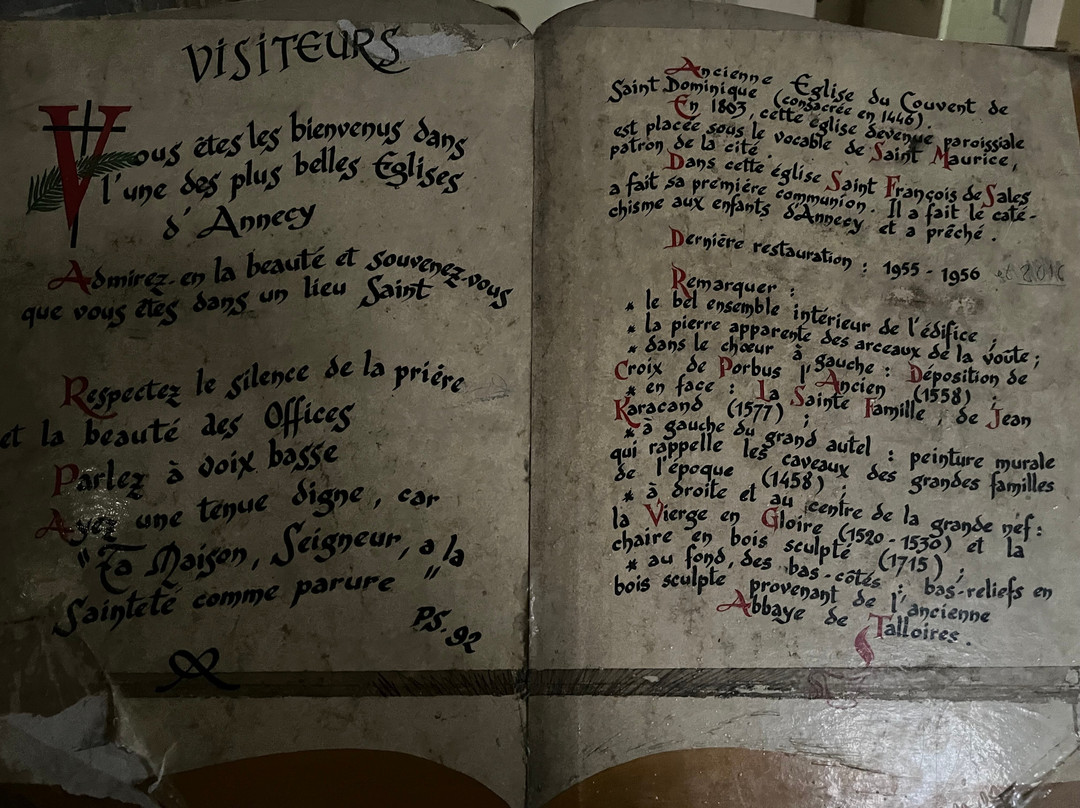 VISITEURS
Vous êtes les bienvenus dans
l'une des plus belles Eglises
d'Annecy
Admirez-en la beauté et souvenez-vous
que vous êtes dans un lieu Saint
Respectez le silence de la prière
et la beauté des Offices
Parlez à voix basse
Ayez une tenue digne, car
"Ta Maison, Seigneur, a la
Sainteté comme parure"
PS. 92
Ancienne Eglise du Couvent de
Saint Dominique (consacrée en 1446).
En 1803, cette église devenue paroissiale
est placée sous le vocable de Saint Maurice,
patron de la cité.
Dans cette église Saint François de Sales
a fait sa première communion. Il a fait le caté-
chisme aux enfants d'Annecy et a prêché.
Dernière restauration : 1955 - 1956 et 2016
Remarquer :
* le bel ensemble intérieur de l'édifice ;
* la pierre apparente des arceaux de la voûte ;
* dans le chœur à gauche : Déposition de
Croix de Porbus l'Ancien (1558) ;
* en face : La Sainte Famille, de Jean
Karacand (1577) ;
* à gauche du grand autel : peinture murale
qui rappelle les caveaux des grandes familles
de l'époque (1458) ;
* à droite et au centre de la grande nef :
la Vierge en Gloire (1520 - 1530) et la
chaire en bois sculpté (1715) ;
* au fond, des bas-côtés : bas-reliefs en
bois sculpté provenant de l'ancienne
Abbaye de Talloires.